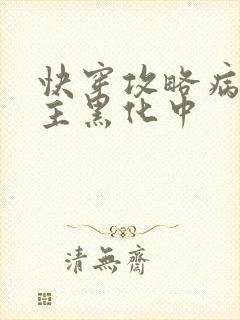 快穿攻略病
主黑化中
清無齋